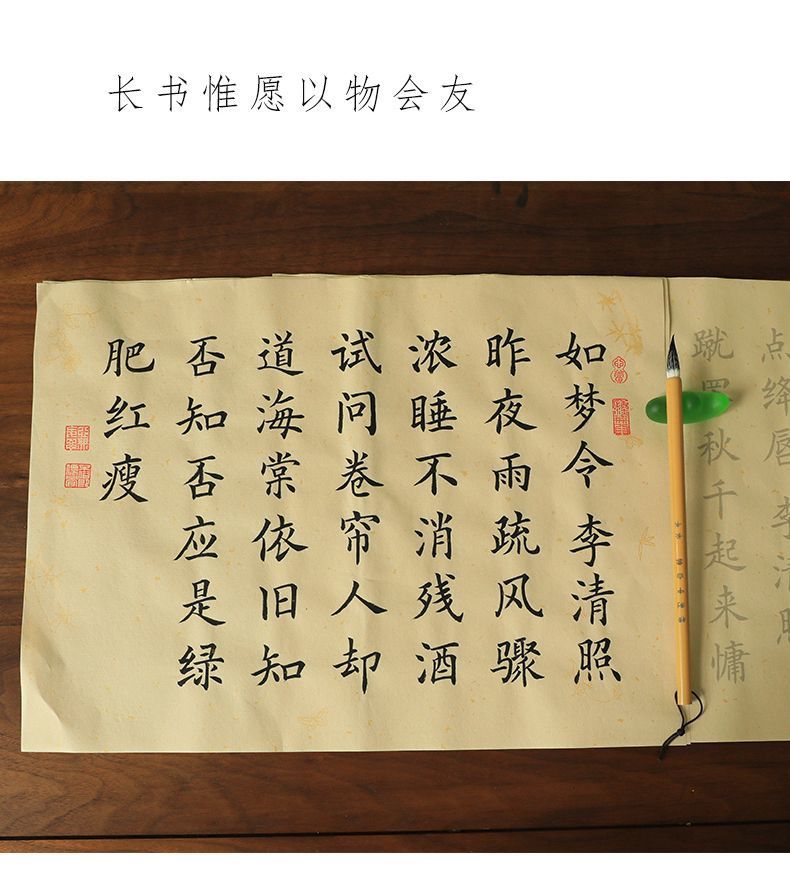 长书惟愿以物会友
如梦令 李清照
昨夜雨疏风骤
浓睡不消残酒
试问卷帘人却
道海棠依旧知
否知否应是绿
肥红瘦
点绛唇 李清照
蹴罢秋千起来慵